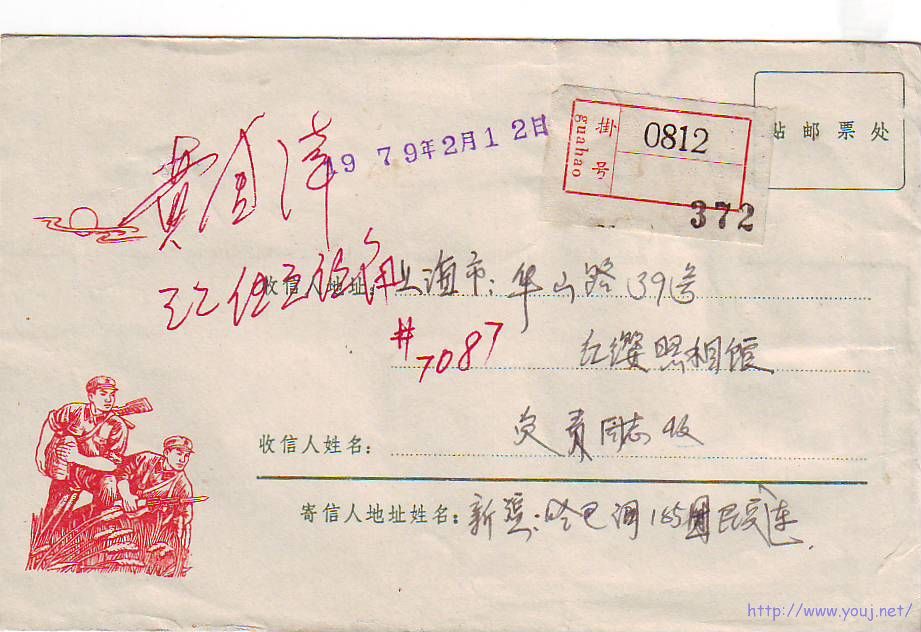 1979年2月12日
掛号
guahao
0812
372
贴邮票处
黄金洋
收信人地址：上海市：华山路391号
#7087
红缨照相馆
收信人姓名：负责同志收
寄信人地址姓名：新疆：哈巴河185团民兵连.
http://www.youj.net/